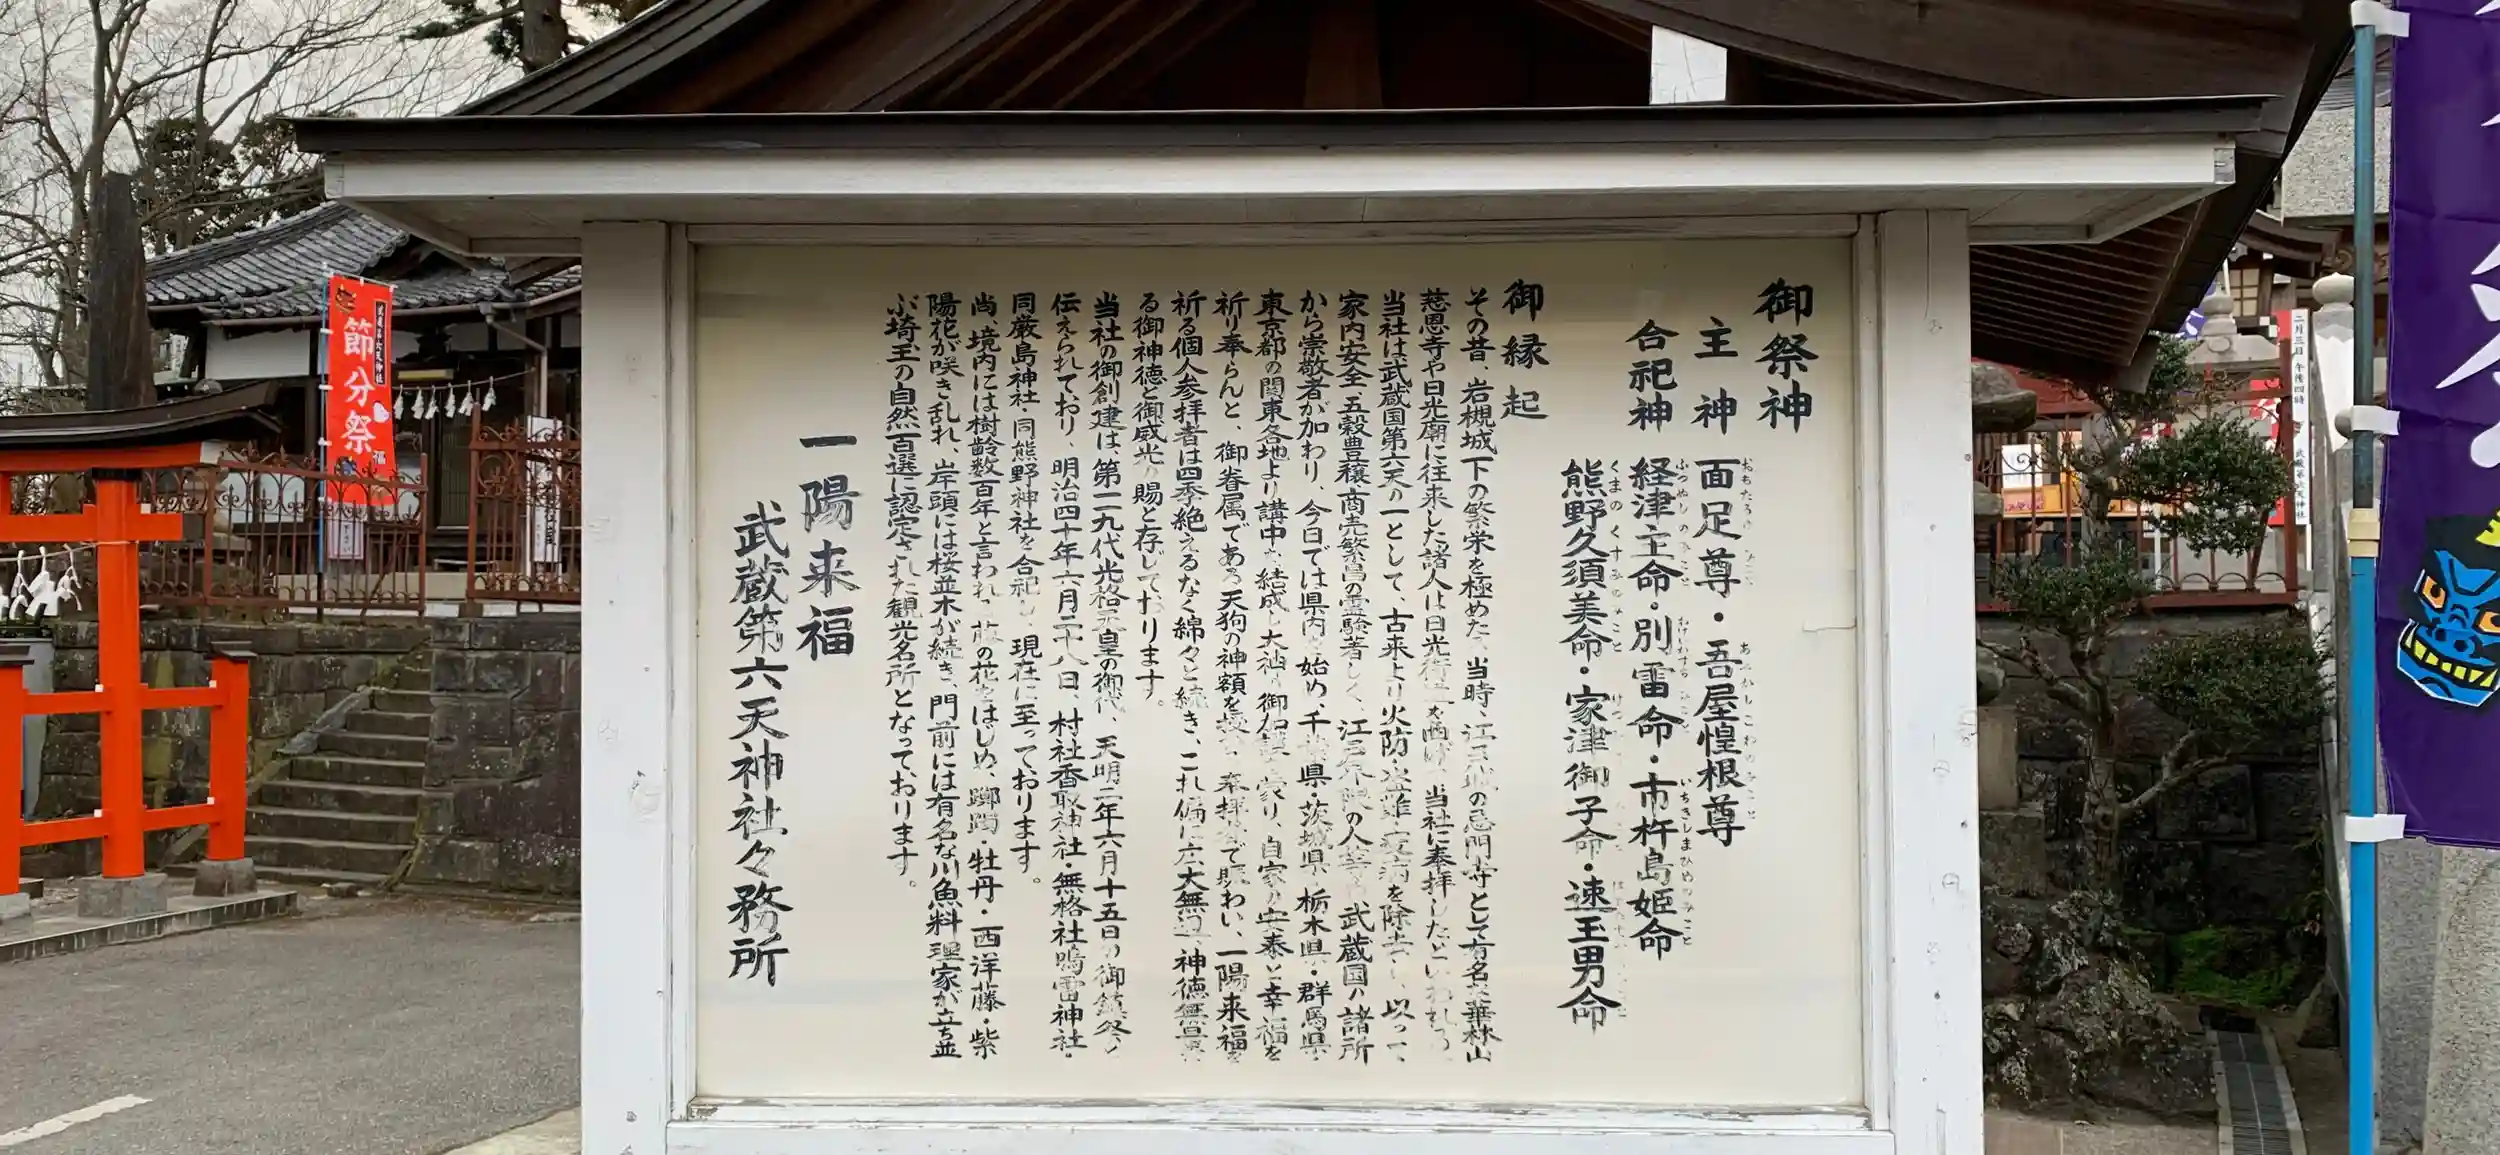 御祭神
主神 面足尊・吾屋惶根尊
合祀神 経津主命・別雷命・市杵島姫命
熊野久須美命・家津御子命・速玉男命
御縁起
その昔、岩槻城下の繁栄を極めた 当時、江戸 の 門寺として有名な華林山
慈恩寺や日光廟に往来した諸人は日光街道 当社に奉拝したといわれ
当社は武蔵国第六天の一として、古来より火防・盗難・疫病を除去し、以って
家内安全、五穀豊穣、商売繁昌の霊験著しく、江戸 の人 武蔵国の諸所
から崇敬者が加わり、今日では県内を始め、千葉県・茨城県・栃木県・群馬県・
東京都の関東各地より講中を結成し大神の御加護を蒙り、自家の安泰と幸福を
祈り奉らんと、御眷属である天狗の神額を 奉拝 で賑わい、一陽来福を
祈る個人参拝者は四季絶えるなく綿々と続き、これ偏に広大無辺、神徳無
る御神徳と御威光の賜と存じております。
当社の御創建は、第一一九代光格天皇の御代、天明二年六月十五日の御鎮祭と
伝えられており、明治四十年六月二十八日、村社香取神社・無格社鳴雷神社・
同厳島神社・同熊野神社を合祀し、現在に至っております。
尚、境内には樹齢数百年と言われ 藤の花をはじめ、躑躅・牡丹・西洋藤・紫
陽花が咲き乱れ、岸頭には桜並木が続き、門前には有名な川魚料理家が立ち並
ぶ埼玉の自然百選に認定された観光名所となっております。
一陽来福
武蔵第六天神社々務所
武蔵第六天神社
節分祭
二月三日 午後四時 武蔵第六天神社